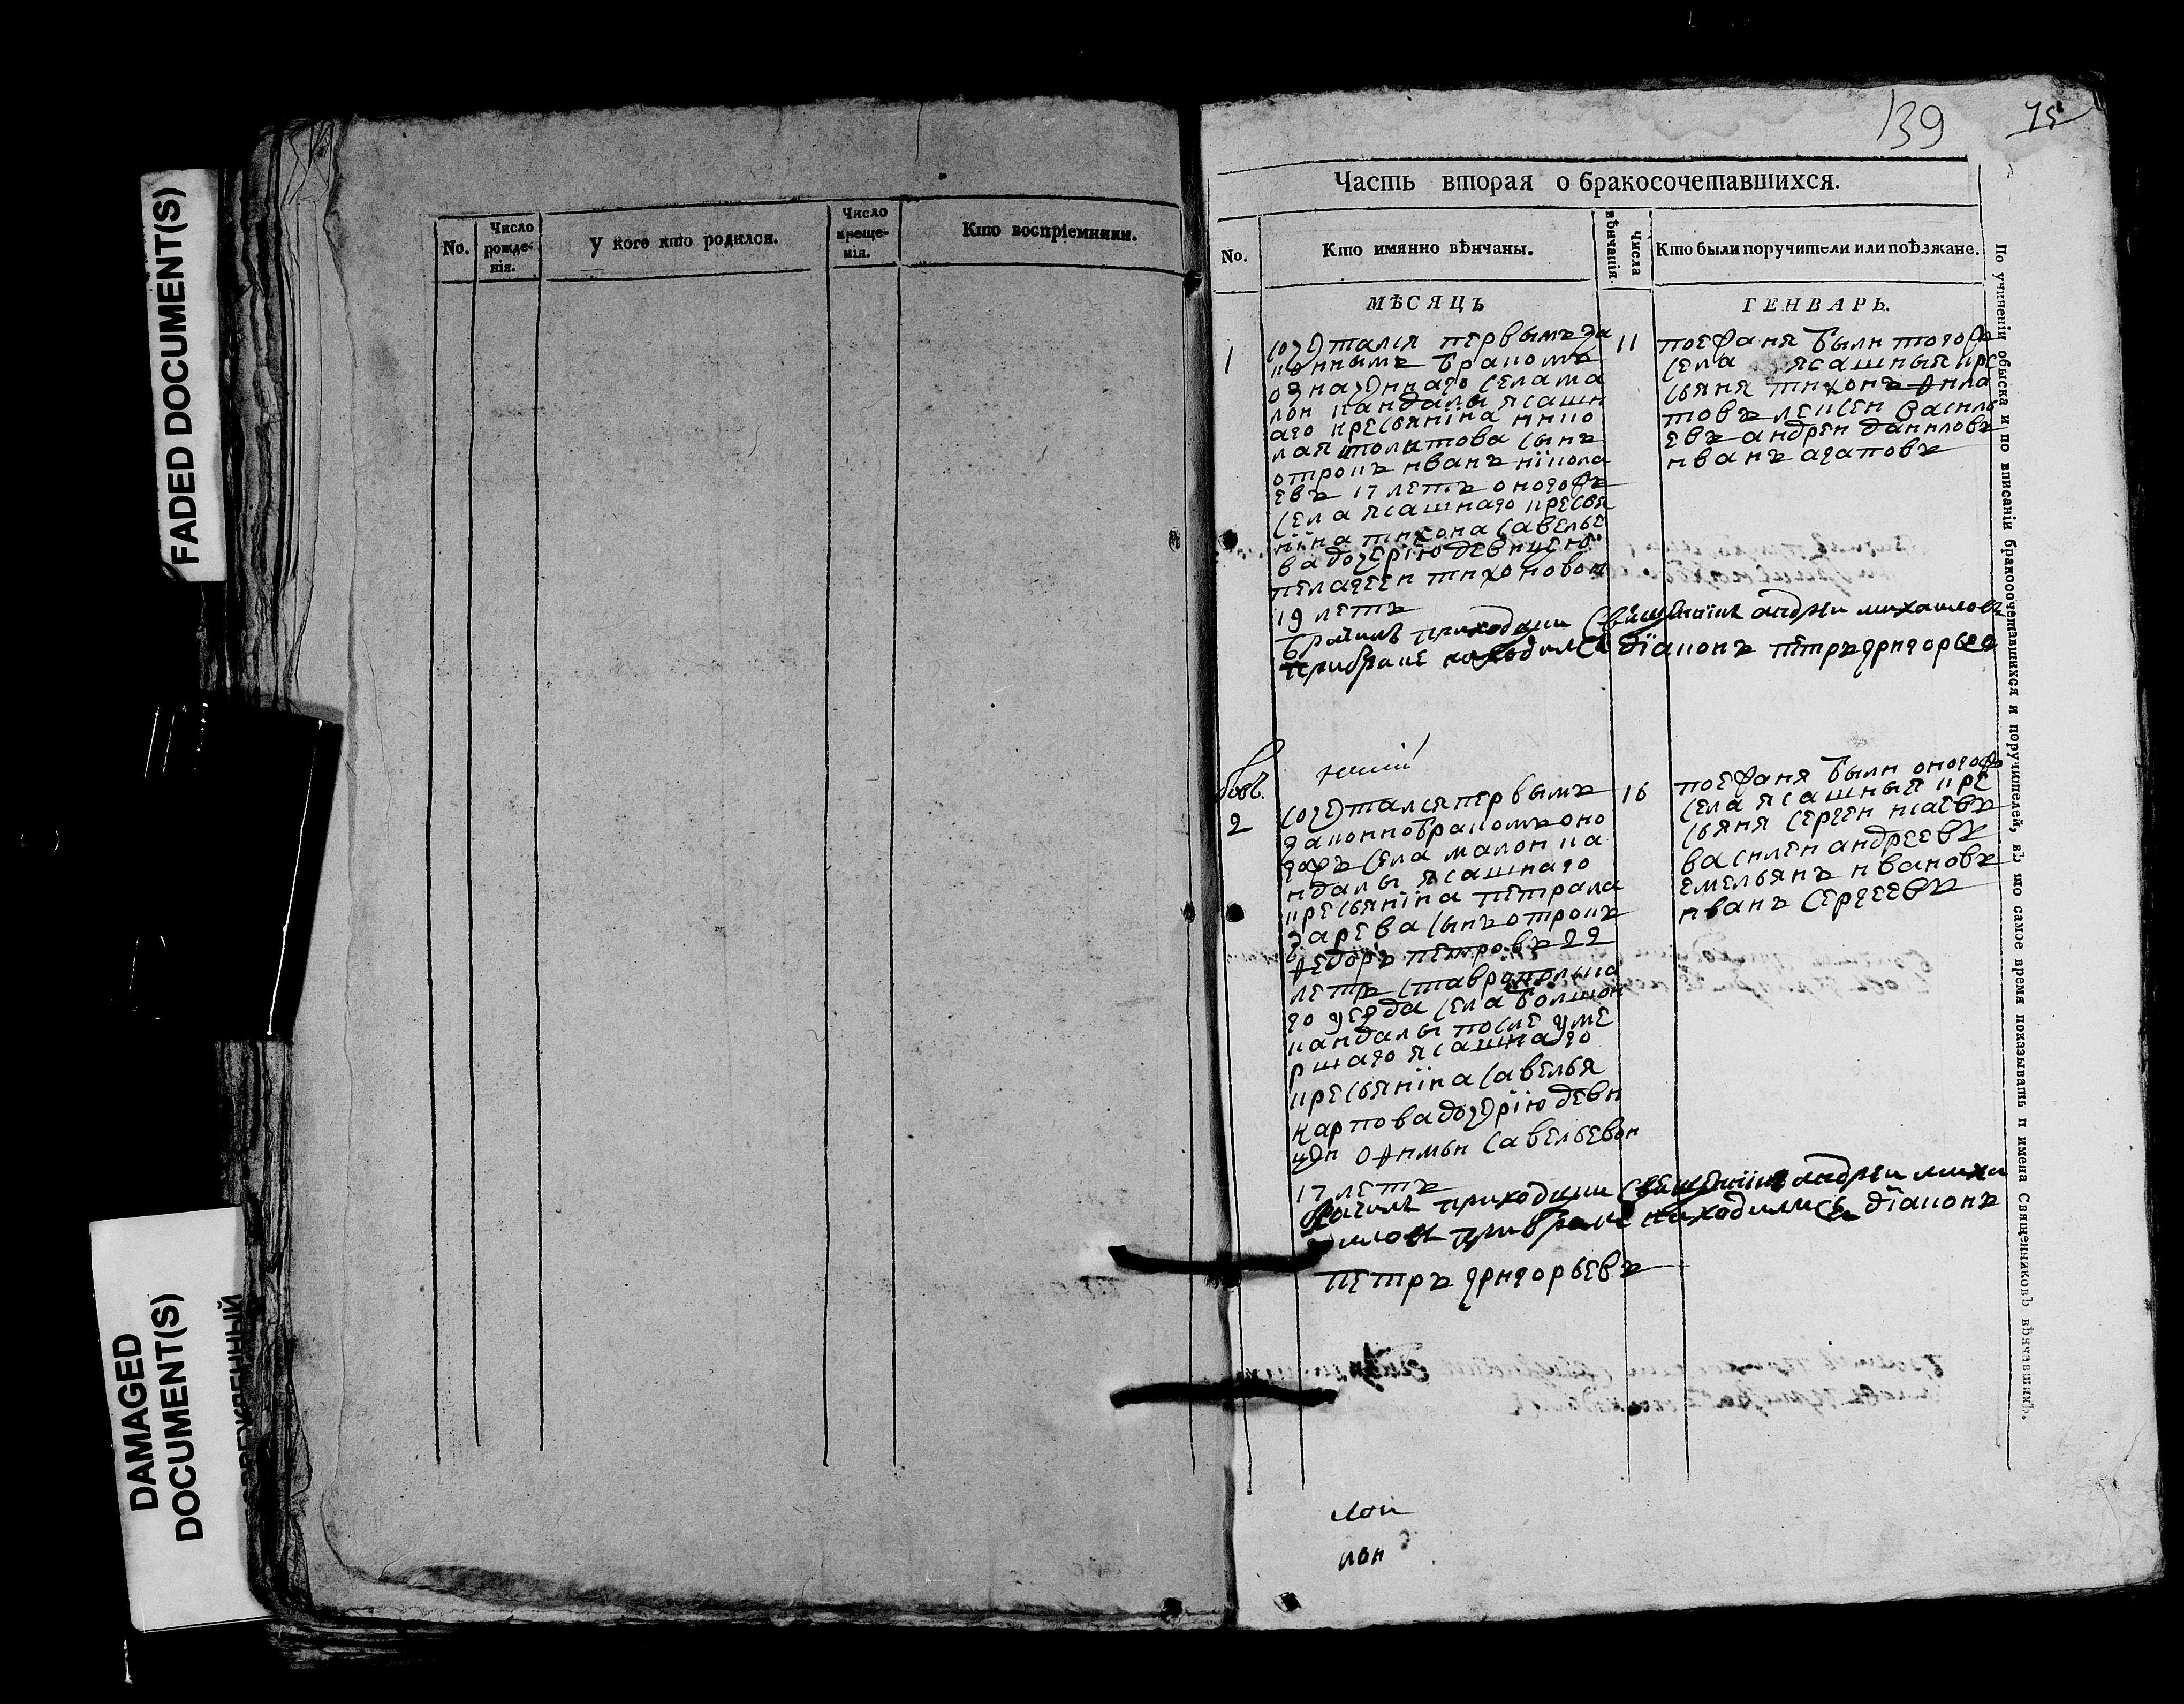 FADED DOCUMENT(S)
DAMAGED
DOCUMENT(S)
No.
Число
рожде-
нія.
У кого кто родился.
Число
креще-
нія.
Кто воспріемники.
139
75
Часть вторая о бракосочетавшихся.
No.
Кто имянно вѣнчаны.
Числа
вѣнчанія.
Кто были поручители или поѣзжане.
МѢСЯЦЪ
ГЕНВАРЬ.
1
сочетался первымъ за
коннымъ бракомъ
означеннаго села ма
лои кандалы ясашн
аго кресьянїна нико
лая
сынъ
отрокъ иванъ нїкола
евъ 17 летъ оногожъ
села ясашнаго кресья
нїна тихона савелье
ва дочерїю девицею
пелагееи тихоновои
19 летъ
11
поежаня были тогожъ
села ясашныя кре
сьяня тихонъ фила
товъ
василь
евъ андреи даниловъ
иванъ агаповъ
приходцки священнїкъ андреи михаиловъ
при браке находился дїаконъ петръ григорьев
2
сочетался первымъ
законнобракомъ оно
гожъ села малои ка
ндалы ясашнаго
кресьянїна петра ла
зарева сынъ отрокъ
федоръ петровъ 22
летъ ставропольска
го уезда села болшои
кандалы после уме
ршаго ясашнаго
кресьянїна савелья
карпова дочерїю деви
цеи офимьи савельевои
17 летъ
16
поежаня были оногожъ
села ясашныя кре
сьяня сергеи исаевъ
василеи андреевъ
емельянъ ивановъ
иванъ сергеевъ
приходцки священнїкъ андреи миха
иловъ при браке находился дїаконъ
петръ григорьевъ
По учиненіи обыска и по вписаніи бракосочетавшихся и поручителей, въ то самое время показывать и имена Священниковъ вѣнчавшихъ.